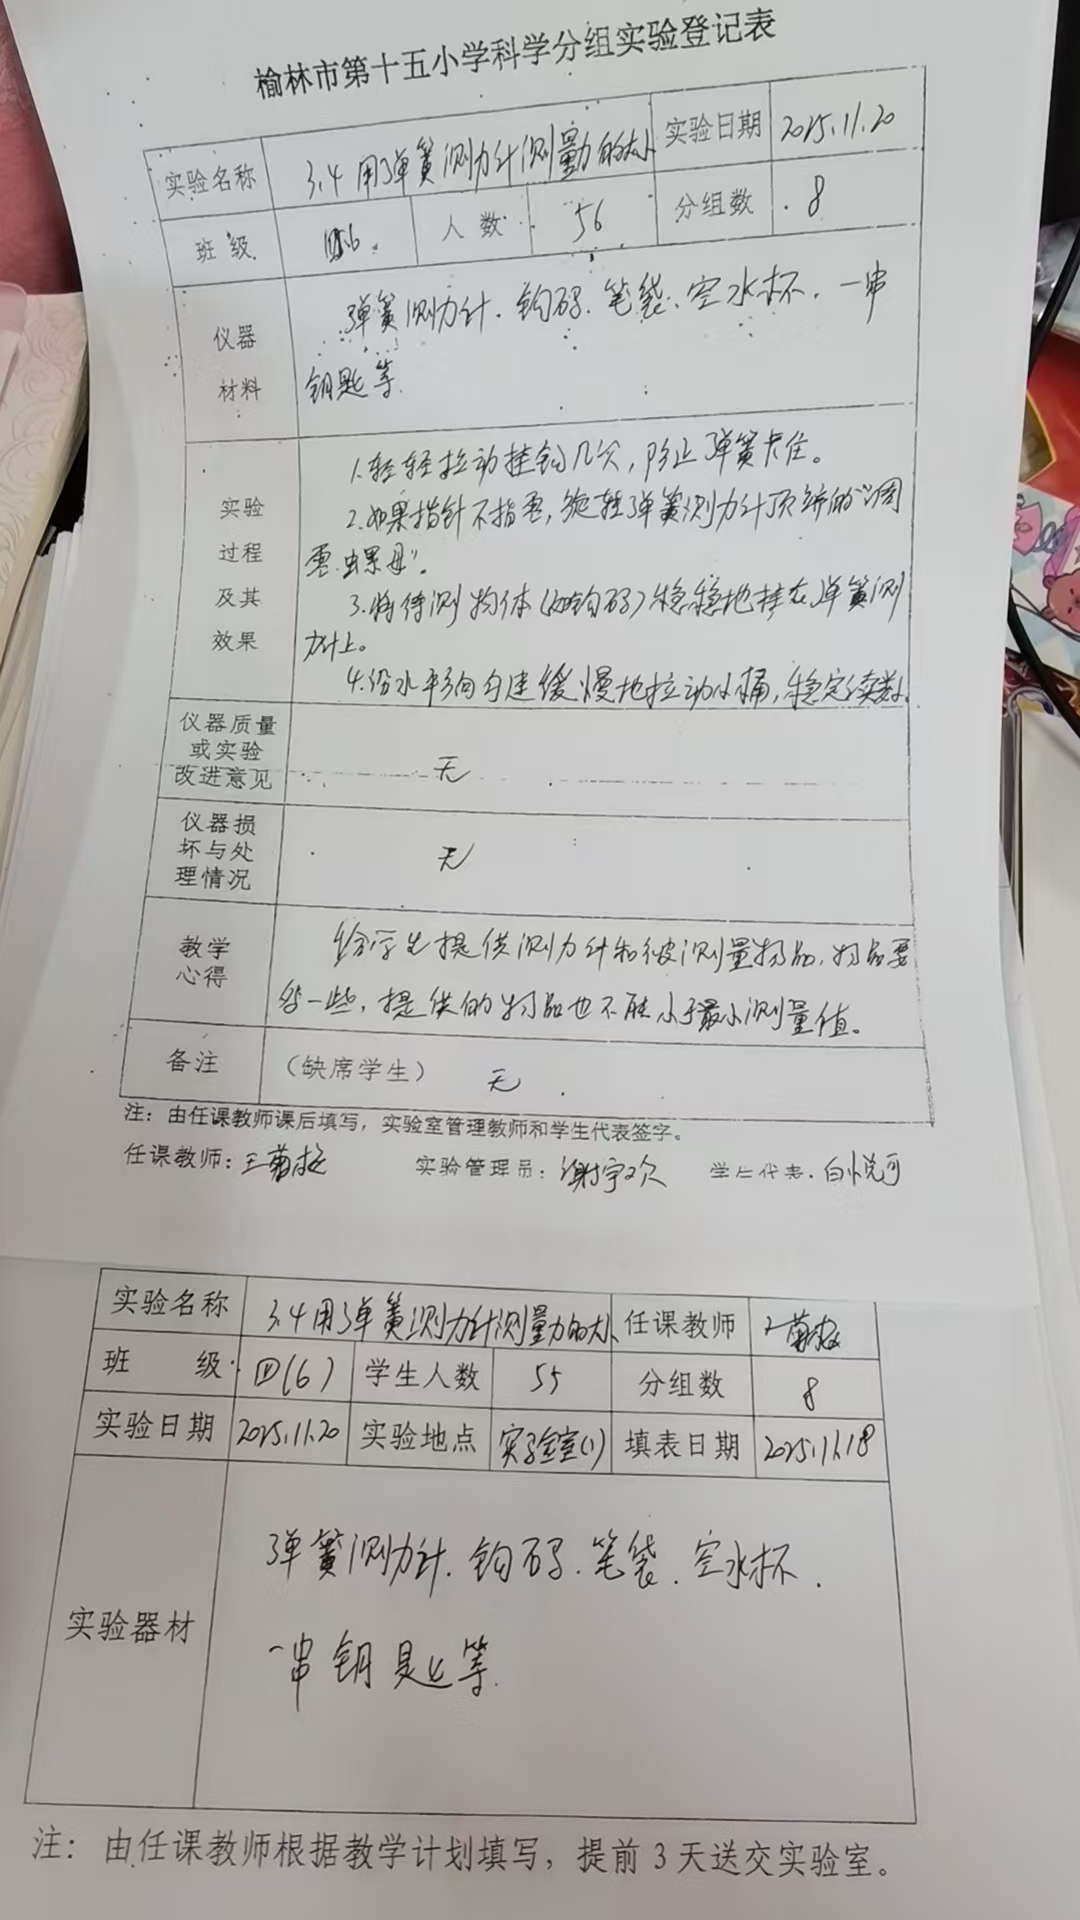 榆林市第十五小学科学分组实验登记表
实验名称 3.4 用弹簧测力计测量力的大小 实验日期 2025.11.20
班级 人数 56 分组数 8
仪器材料 弹簧测力计、钩码、笔袋、空水杯、一串
钥匙等.
实验过程及其效果 1.轻轻拉动挂钩几次，防止弹簧卡住。
2.如果指针不指零，旋转弹簧测力计顶端的“调
零螺母”。
3.将待测物体（如钩码）稳稳地挂在弹簧测
力计上。
4.沿水平方向匀速缓慢地拉动小桶，稳定读数。
仪器质量或实验改进意见 无
仪器损坏与处理情况 无
教学心得 给学生提供测力计和被测量物品，物品要
些，提供的物品也不能小于最小测量值。
备注 （缺席学生） 无
注：由任课教师课后填写，实验室管理教师和学生代表签字。
任课教师：王菊 实验管理员：谢宇欢 学生代表：白悦可
实验名称 3.4 用弹簧测力计测量力的大小 任课教师 王菊
班级 四(6) 学生人数 55 分组数 8
实验日期 2025.11.20 实验地点 实验室(1) 填表日期 2025.11.18
实验器材 弹簧测力计、钩码、笔袋、空水杯、
一串钥匙等.
注：由任课教师根据教学计划填写，提前 3 天送交实验室。